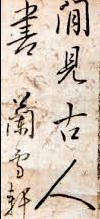 間見古人
書
蘭雪軒